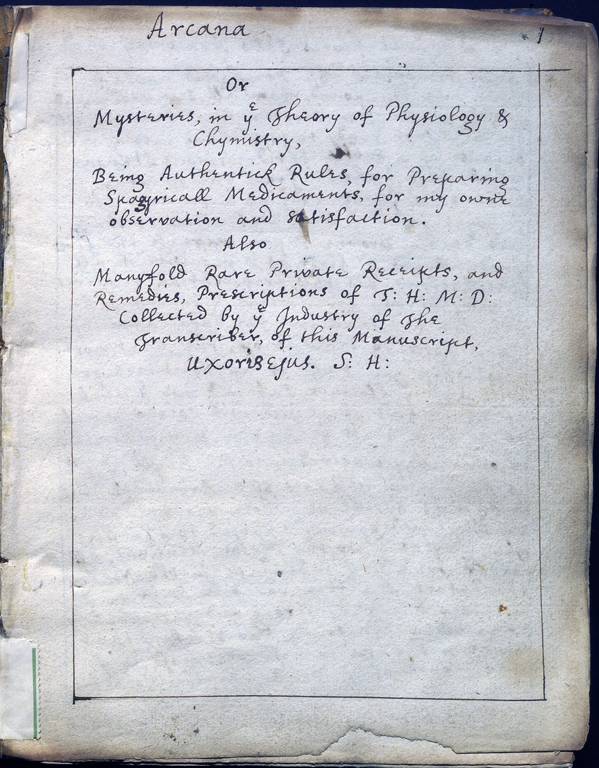 Arcana 1
Or
Mysteries, in yᵉ Theory of Physiology &
Chymistry,
Being Authentick Rules, for Preparing
Spagyricall Medicaments, for my owne
observation and satisfaction.
Also
Manyfold Rare Private Receipts, and
Remedies, Prescriptions of T: H: M: D:
Collected by yᵉ Industry of the
Transcriber, of this Manuscript,
Uxoris Ejus. S: H: